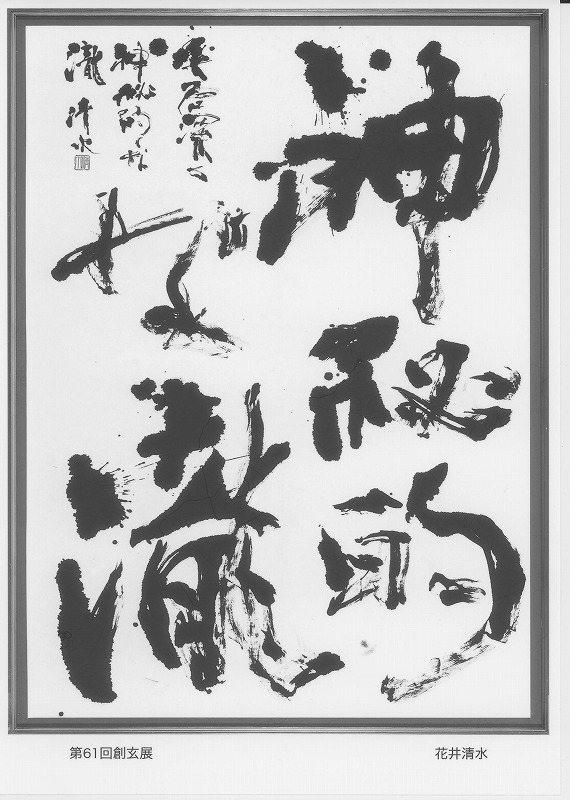 神秘的
な瀧
神秘的な
瀧 清水
第61回創玄展
花井清水